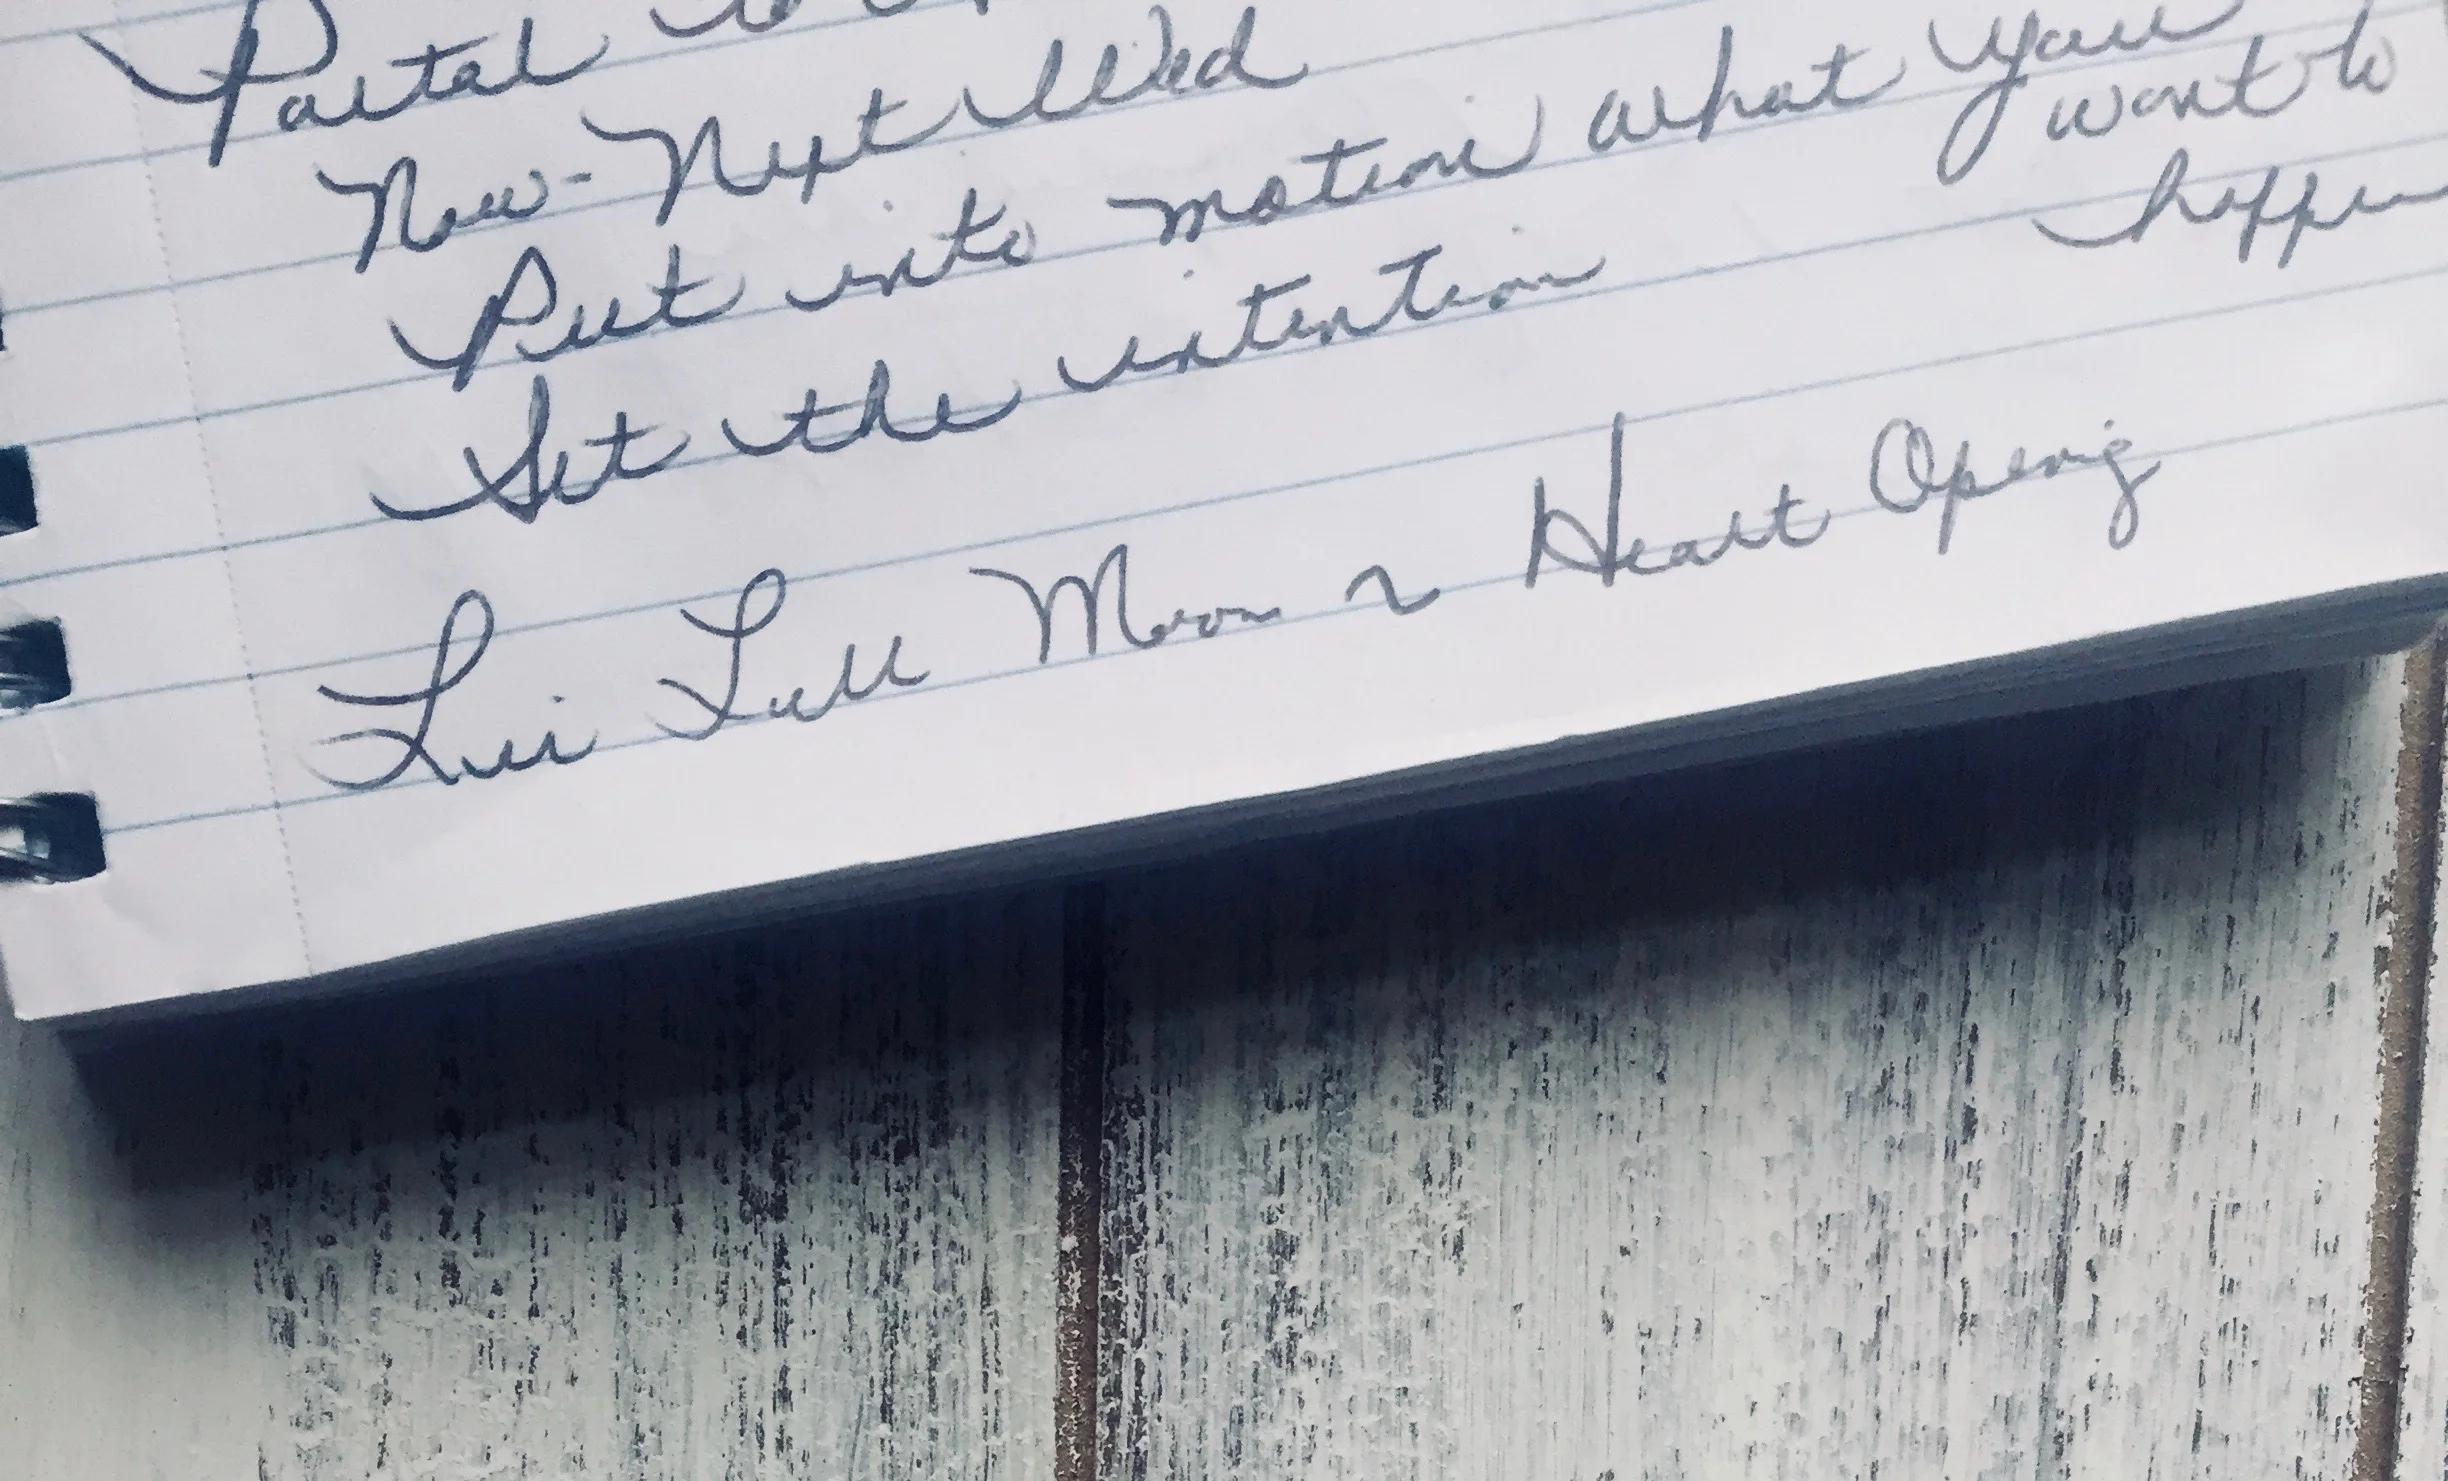 Portal to
Now - Next Wed
Put into motion what you
want to
happen
Set the intention
Full Moon ~ Heart Opening